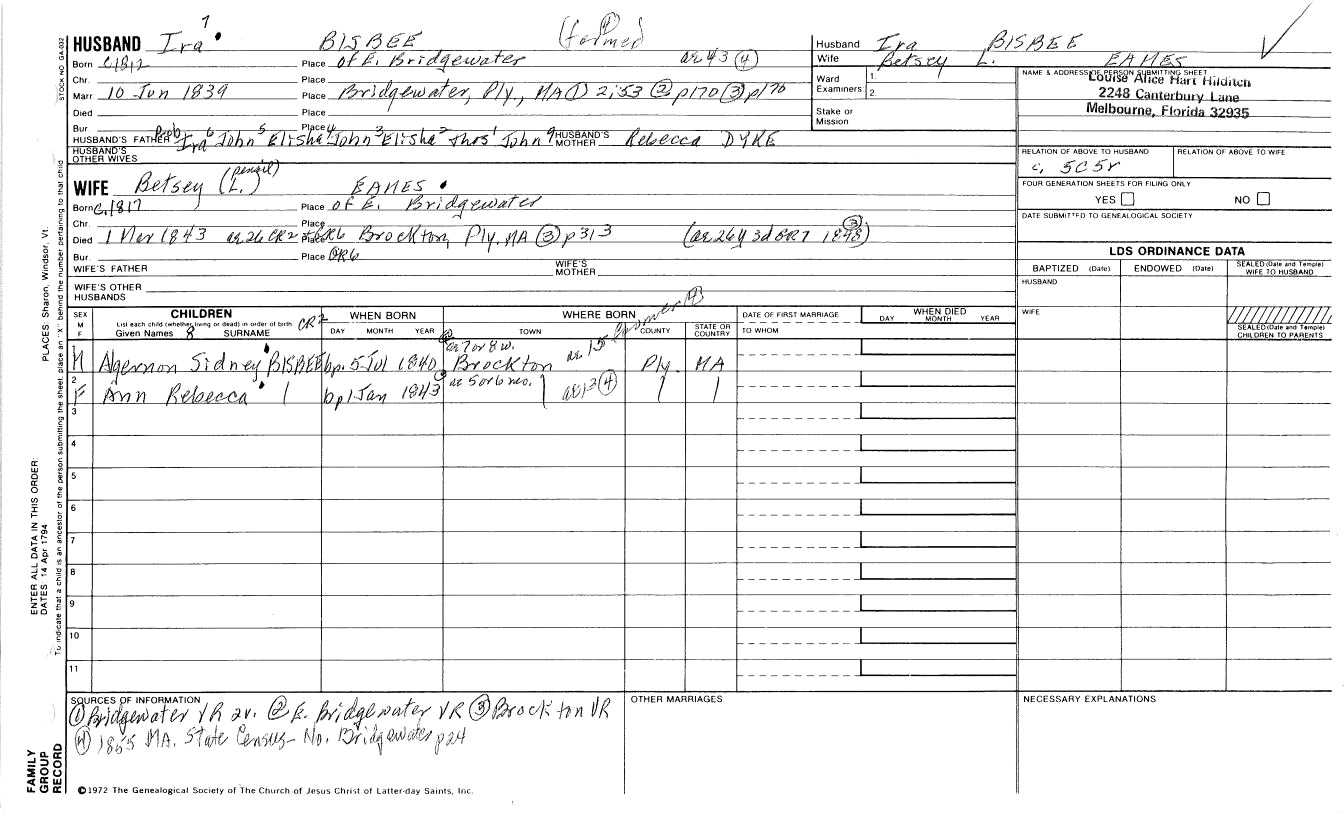 7
HUSBAND Ira BISBEE (4) (farmer)
Born C1812 Place of E. Bridgewater ae 43 (4)
Chr. Place
Marr 10 Jun 1839 Place Bridgewater, Ply., MA (1) 2:53 (2) p170 (3) p170
Died Place
Bur Place
HUSBAND'S FATHER Prob Ira 6 John 5 Elisha 4 John 3 Elisha 2 Thos 1 John 9 HUSBAND'S MOTHER Rebecca DYKE
HUSBAND'S OTHER WIVES
WIFE Betsey (L.) (pencil) EAMES
Born C.1817 Place of E. Bridgewater
Chr. Place
Died 1 Mar 1843 ae. 26 CR2 + GR6 Place Brockton, Ply. MA (3) p313 (ae. 26 y 3d GR7 1848) (3)
Bur. Place GR6
WIFE'S FATHER WIFE'S MOTHER
WIFE'S OTHER HUSBANDS
Husband Ira BISBEE
Wife Betsey L. EAMES
Ward 1.
Examiners 2.
Stake or Mission
NAME & ADDRESS OF PERSON SUBMITTING SHEET
Louise Alice Hart Hilditch
2248 Canterbury Lane
Melbourne, Florida 32935
RELATION OF ABOVE TO HUSBAND RELATION OF ABOVE TO WIFE
c, 5C5r
FOUR GENERATION SHEETS FOR FILING ONLY
YES NO
DATE SUBMITTED TO GENEALOGICAL SOCIETY
LDS ORDINANCE DATA
BAPTIZED (Date) ENDOWED (Date) SEALED (Date and Temple) WIFE TO HUSBAND
HUSBAND
WIFE
SEALED (Date and Temple) CHILDREN TO PARENTS
SEX M F CHILDREN WHEN BORN WHERE BORN DATE OF FIRST MARRIAGE WHEN DIED
List each child (whether living or dead) in order of birth CR2
Given Names 8 SURNAME DAY MONTH YEAR TOWN COUNTY STATE OR COUNTRY TO WHOM DAY MONTH YEAR
ae 7 or 8 w. ae. 15 farmer (4)
1 M Algernon Sidney BISBEE bp. 5 Jul 1840 Brockton Ply. MA
ae 5 or 6 mo. ae 13 (4)
2 F Ann Rebecca bp 1 Jan 1843
3
4
5
6
7
8
9
10
11
SOURCES OF INFORMATION
(1) Bridgewater VR 2v. (2) E. Bridgewater VR (3) Brockton VR
(4) 1855 MA. State Census - No. Bridgewater p24
OTHER MARRIAGES
NECESSARY EXPLANATIONS
©1972 The Genealogical Society of The Church of Jesus Christ of Latter-day Saints, Inc.
STOCK NO. GSA-032
PLACES: Sharon, Windsor, Vt.
ENTER ALL DATA IN THIS ORDER:
DATES 14 Apr 1794
To indicate that a child is an ancestor of the person submitting the sheet, place an "X" behind the number pertaining to that child
FAMILY GROUP RECORD